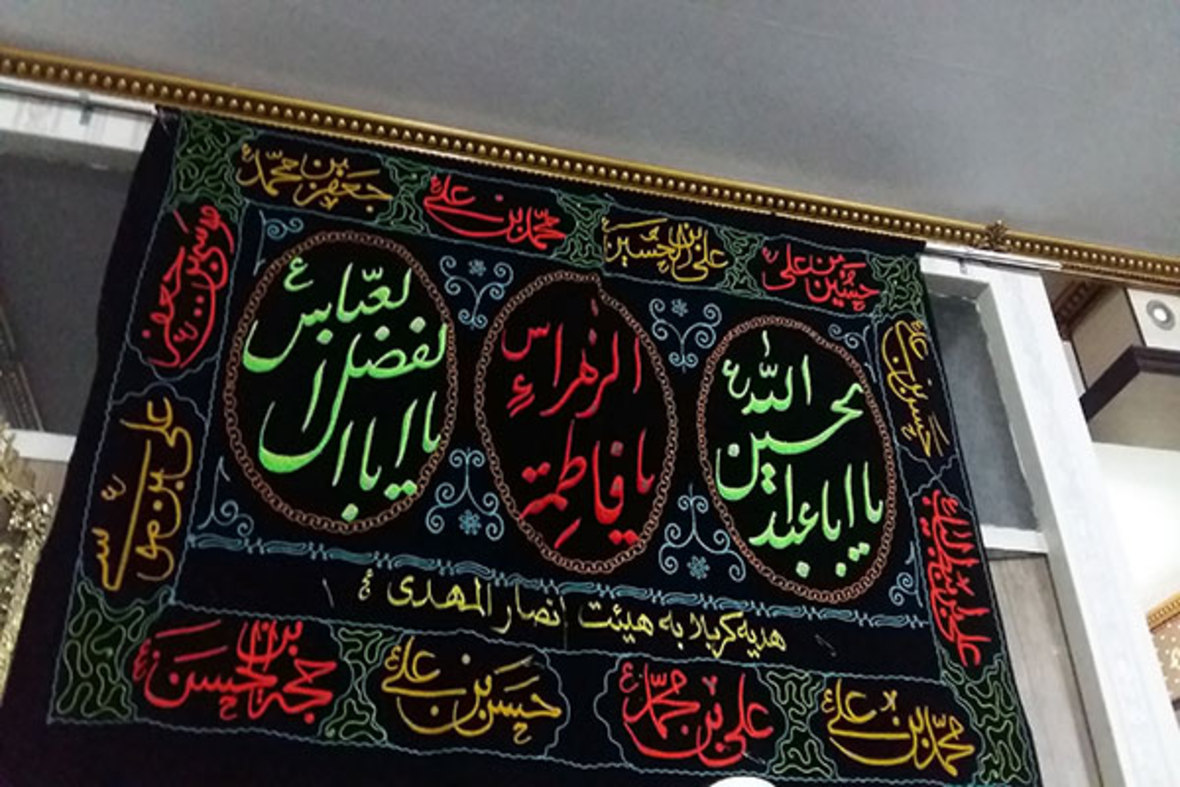 حسین بن علی ع
علی بن الحسین ع
محمد بن علی ع
جعفر بن محمد ع
حسن بن علی ع
علی بن ابیطالب ع
موسی بن جعفر ع
علی بن موسی ع
یا اباعبدالله
الحسین ع
یا فاطمة
الزهراء س
یا اباالفضل
العباس ع
هدیه کربلا به هیئت انصار المهدی ع
محمد بن علی ع
علی بن محمد ع
حسن بن علی ع
حجة بن الحسن ع